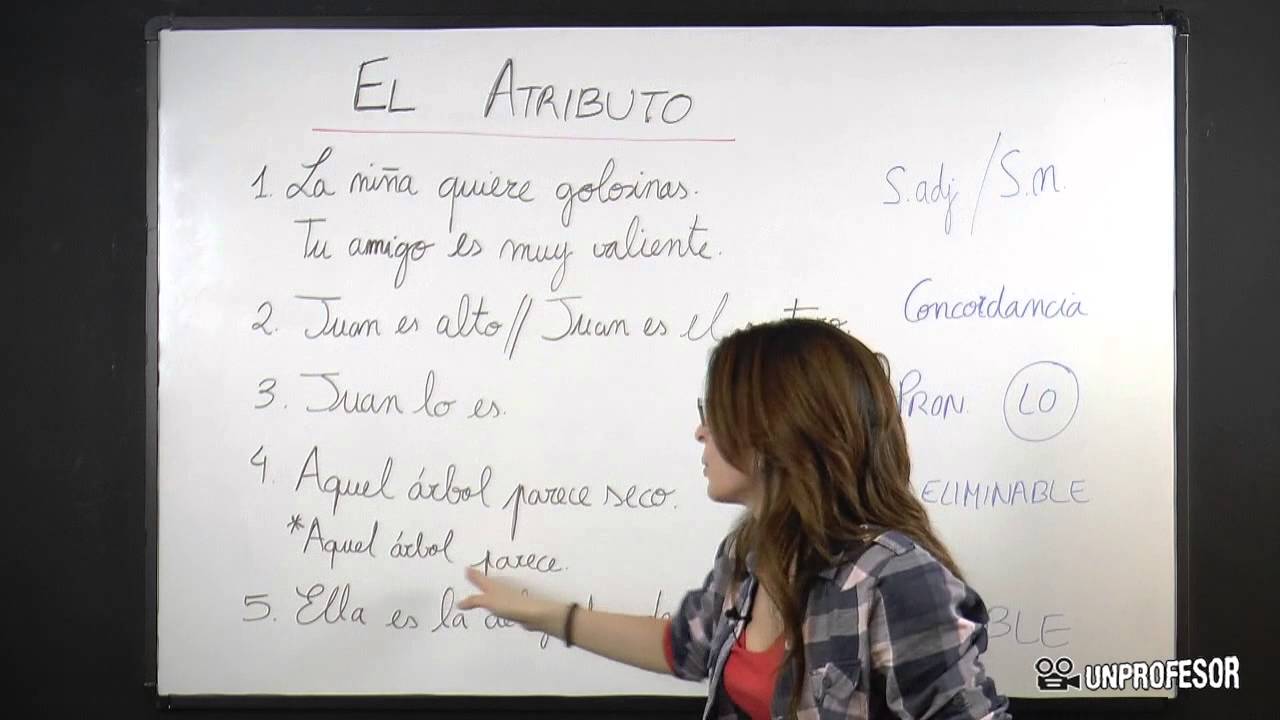 EL ATRIBUTO
1. La niña quiere golosinas. S.adj / S.n.
Tu amigo es muy valiente.
2. Juan es alto // Juan es el Concordancia
3. Juan lo es. PRON. LO
4. Aquel árbol parece seco. ELIMINABLE
*Aquel árbol parece.
5. Ella es la
UNPROFESOR